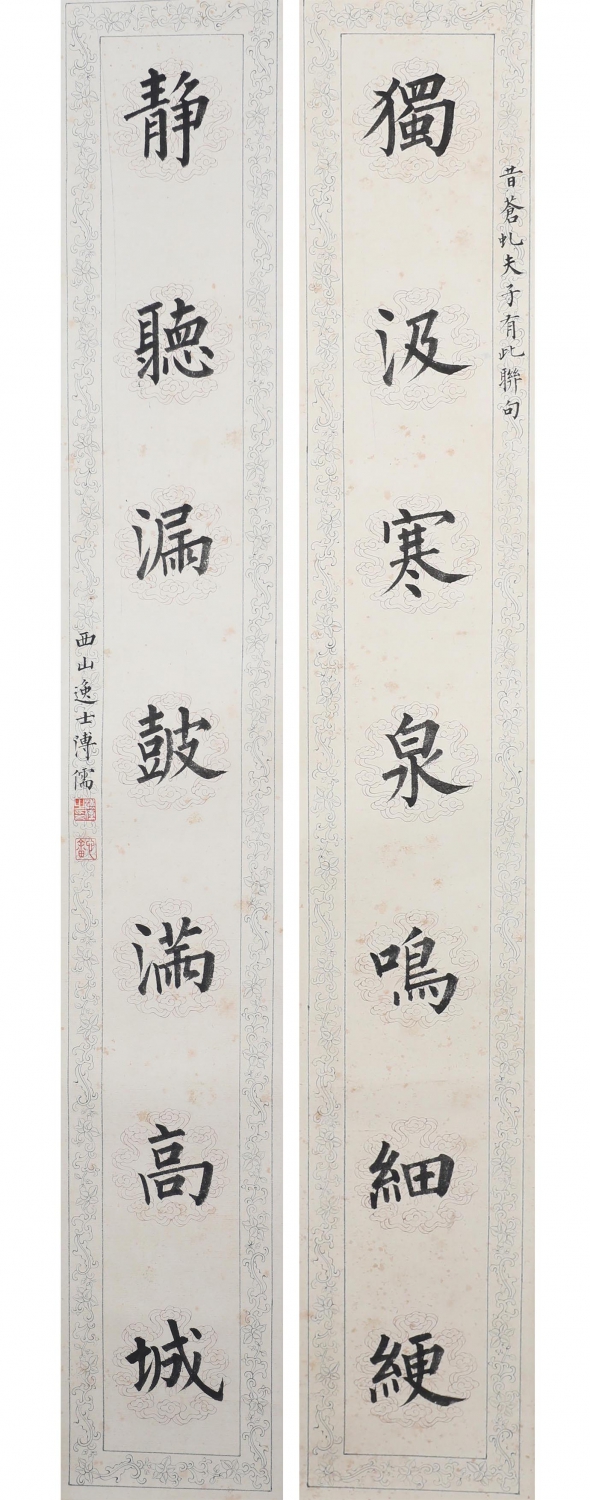 昔蒼虬夫子有此聯句
獨汲寒泉鳴細綆
靜聽漏鼓滿高城
西山逸士溥儒